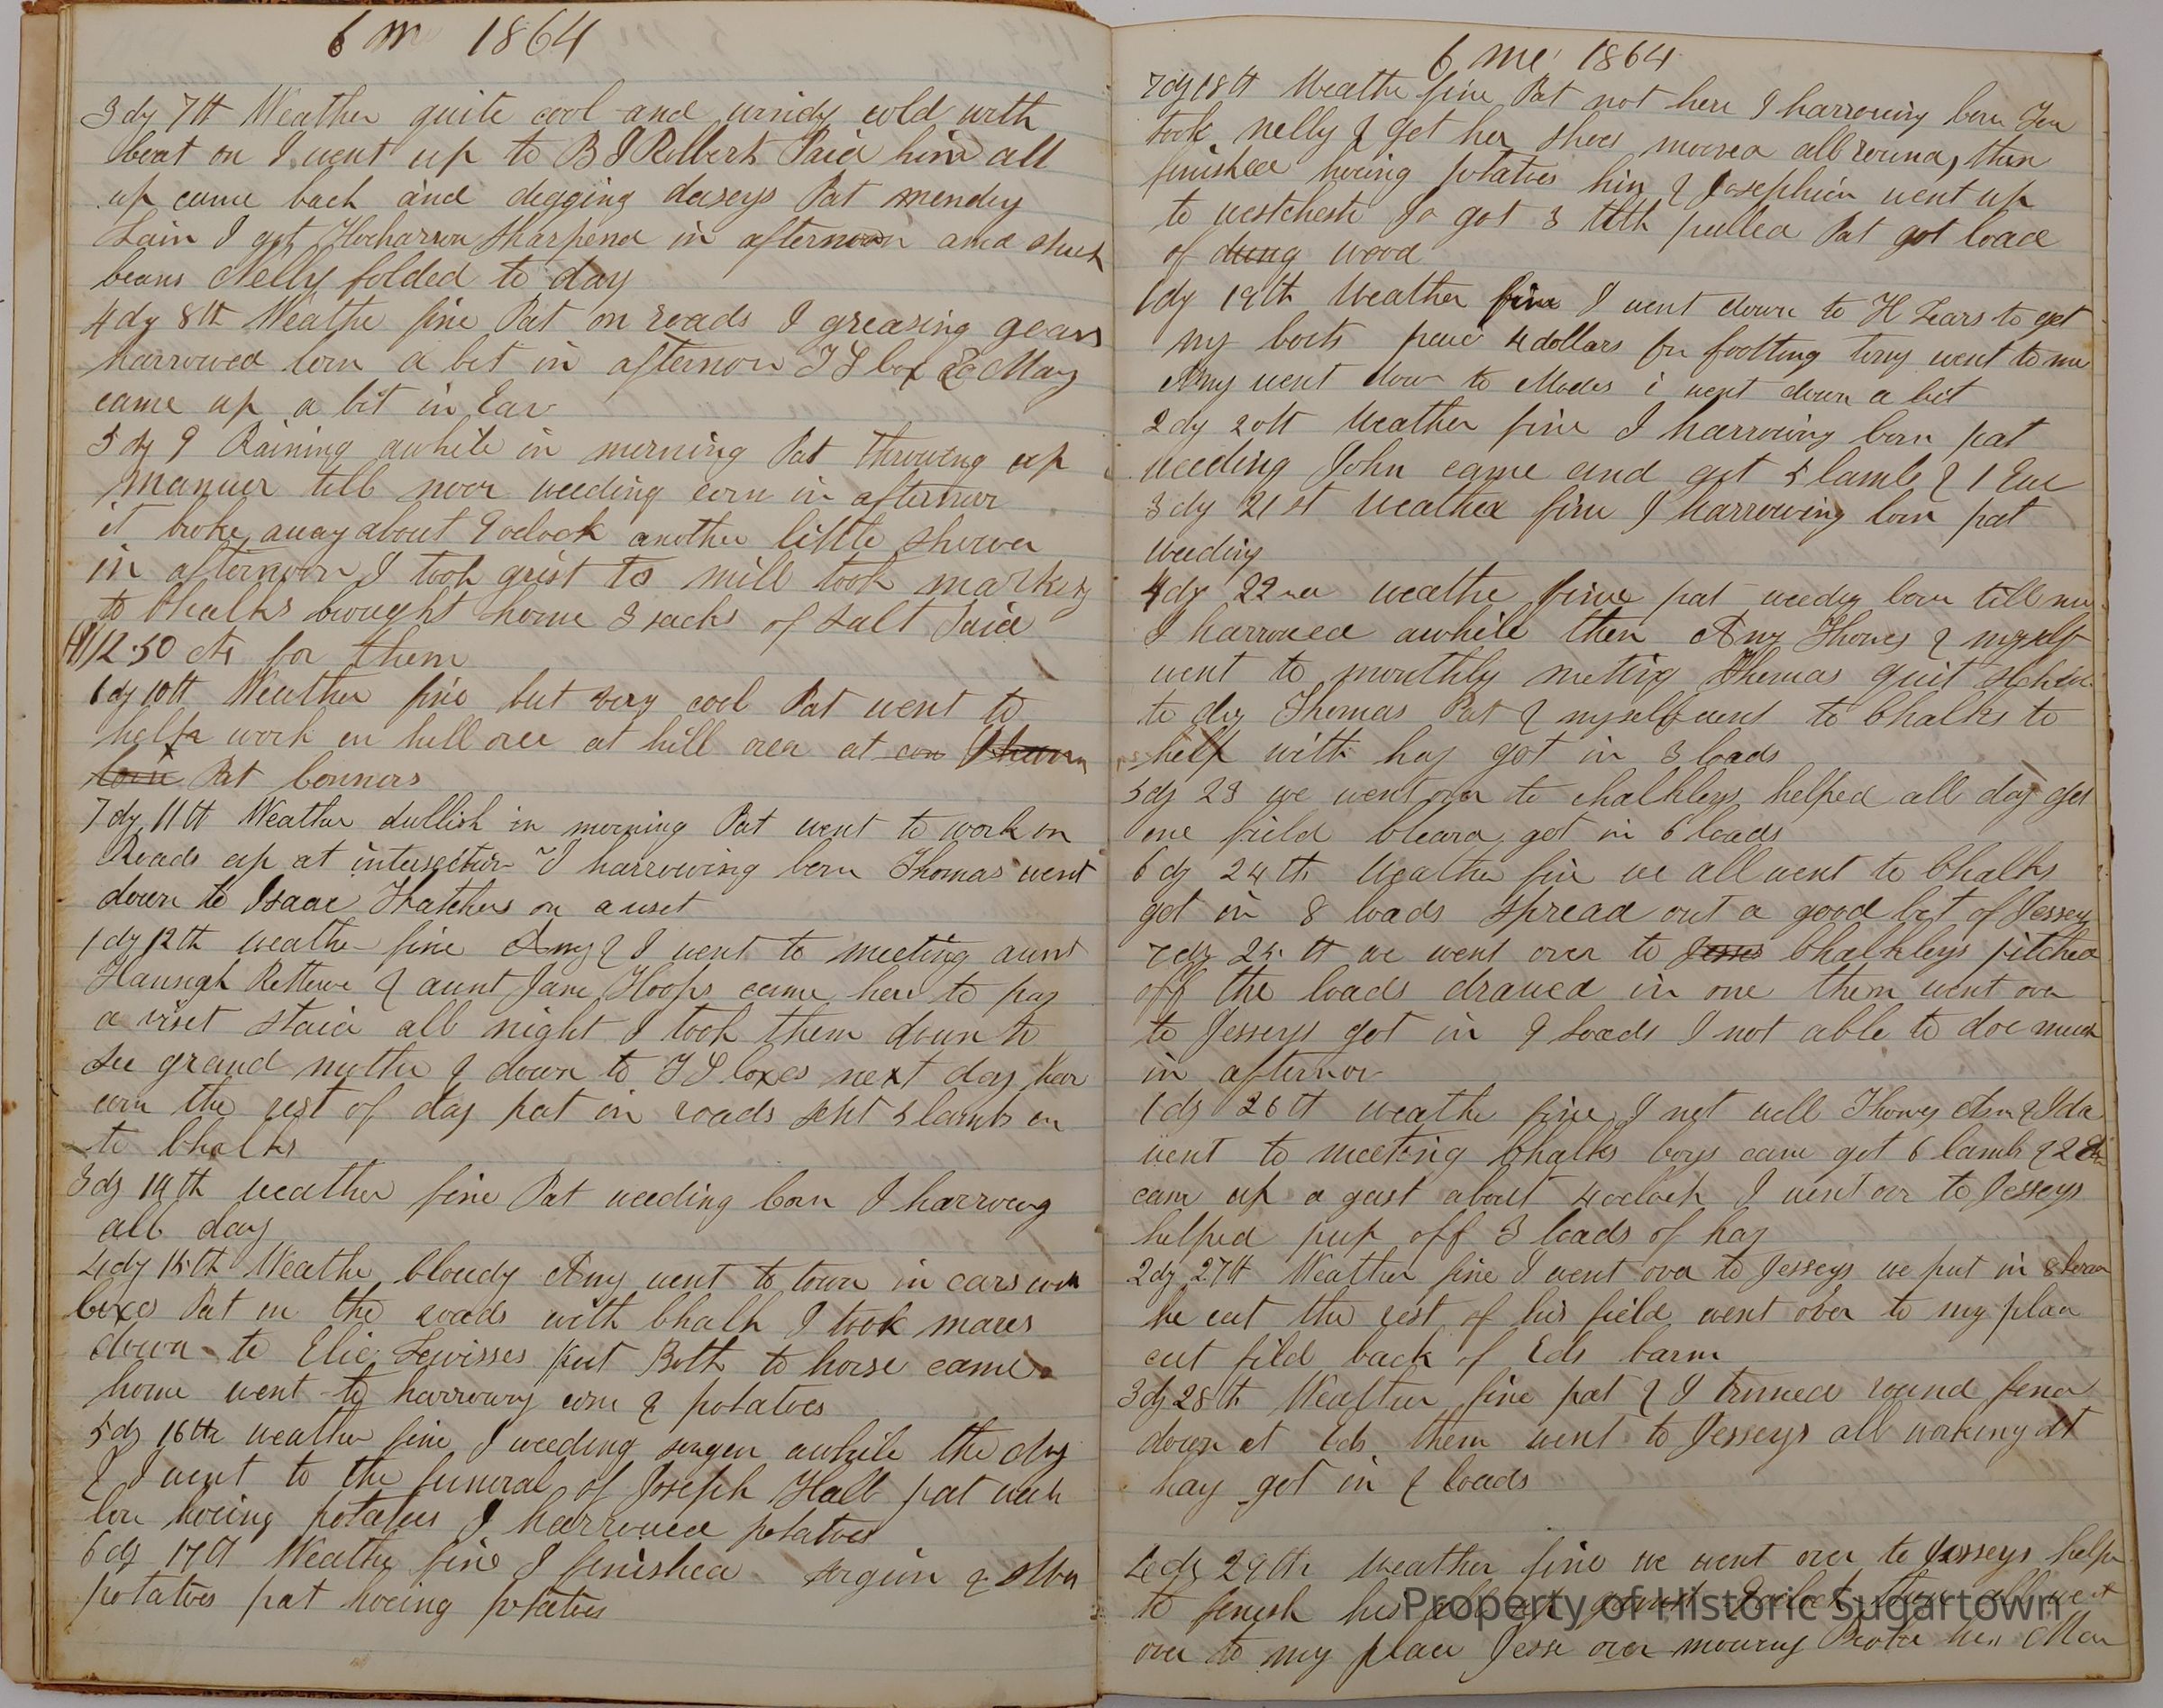 6 m 1864
3 dy 7th Weather quite cool and windy cold with
boat on I went up to B J Rolberts Paid him all
up came back and digging daseys Pat mendig
Lain I got Hoeharrow Sharpend in afternoon and stuck
beans Nelly folded to day
4 dy 8th Weathe fine Pat on roads I greasing gears
harrowed corn a bit in afternon J S Cox & Mary
came up a bit in Eav
5 dy 9 Raining awhile in morning Pat throwing up
manuer till noon weeding corn in afternoon
it broke away about 9 oclock another little shower
in afternoon I took grist to mill took marketg
to Chalks brought home 3 sacks of salt Paid
12.50 cts for them
6 dy 10th Weather fine but very cool Pat went to
help work on hill over at hill over at
Pat Connors
7 dy 11th Weather dullish in morning Pat went to work on
Roads up at intersection I harrowing Corn Thomas went
down to Isaac Thatchers on a viset
1 dy 12th weathe fine Amy & I went to meeting aunt
Hannah Rettewe & aunt Jane Hoops came here to pay
a viset staid all night I took them down to
see grand mother & down to J S Coxes next day har
corn the rest of day pat on roads sent 5 lambs on
to Chalks
3 dy 14th weather fine Pat weeding Corn I harrowing
all day
4 dy 15th Weathe Cloudy Amy went to town in cars with
Coxes Pat on the roads with Chalk I took mares
down to Elie Lewisses put Both to horse came
home went to harrowing corn & potatoes
5 dy 16th weather fine I weeding sorgen awhile the dry
& I went to the funeral of Joseph Hall pat with
Cox hoeing potatoes I harrowed potatoes
6 dy 17th Weathe fine I finished sorgium &
potatoes pat hoeing potatoes
6 mo 1864
7 dy 18th Weathe fine Pat not here I harrowing Corn Tom
took nelly & got her shoes mooved all round, then
finished hoeing potatoes him & Josephien went up
to westcheste Jo got 3 teth pulled Pat got load
of dung wood
1 dy 19th Weather fine I went down to H Lears to get
my boots paid 4 dollars for footting tomy went to me
Amy went down to Modes i went down a bit
2 dy 20th Weather fine I harrowing Corn pat
weeding John came and got 5 lamb & 1 Eue
3 dy 21st Weather fine I harrowing Corn pat
weeding
4 dy 22nd weathe fine pat weedig Corn till nu
I harrowed awhile then Amy Thomes & myself
went to monthly metting Thomas quit
to day Thomas Pat & myself went to Chalks to
help with hay got in 3 loads
5 dy 23 we went over to Chalkleys helped all day got
one field Cleard got in 6 loads
6 dy 24th Weathe fine we all went to Chalks
got in 8 loads spread out a good bit of Jesseys
7 dy 25th we went over to Jesses Chalkleys pitched
off the loads drawed in one them went over
to Jesseys got in 9 loads I not able to doe much
in afternon
1 dy 26th weathe fine I not well Thomes Am & Ida
went to meeting Chalks boys came got 6 lamb & 2
came up a gust about 4 oclock I went over to Jesseys
helped put off 3 loads of hay
2 dy 27th Weather fine I went over to Jesseys we put in 8 loads
he cut the rest of his field went over to my place
cut fild back of Eds barn
3 dy 28th Weather fine pat & I trimed round fence
down at Eds them went to Jesseys all working at
hay got in 9 loads
4 dy 29th Weather fine we went over to Jesseys help
to finish his oclock then all went
over to my place Jesse over mowing Broke his Mow
Property of Historic Sugartown